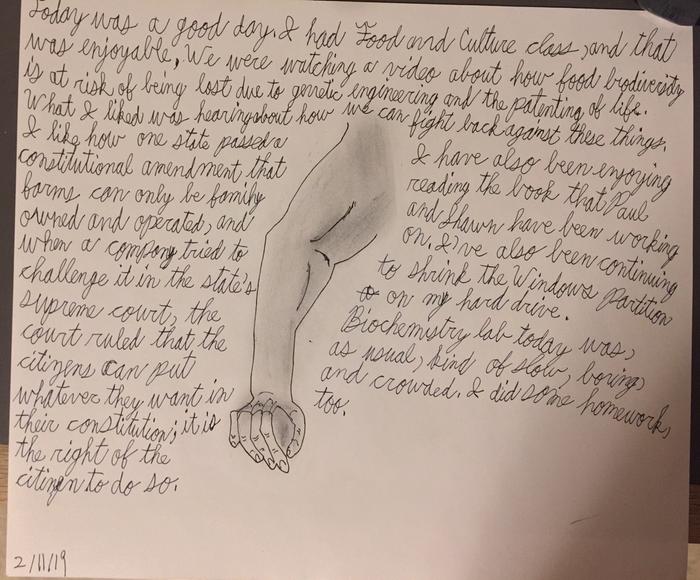 Today was a good day. I had Food and Culture class, and that
was enjoyable. We were watching a video about how food biodiversity
is at risk of being lost due to genetic engineering and the patenting of life.
What I liked was hearing about how we can fight back against these things.
I like how one state passed a
constitutional amendment that
farms can only be family
owned and operated, and
when a company tried to
challenge it in the state's
supreme court, the
court ruled that the
citizens can put
whatever they want in
their constitution; it is
the right of the
citizen to do so.
I have also been enjoying
reading the book that Paul
and Shawn have been working
on. I've also been continuing
to shrink the Windows Partition
on my hard drive.
Biochemistry lab today was,
as usual, kind of slow, boring,
and crowded. I did some homework,
too.
2/11/19